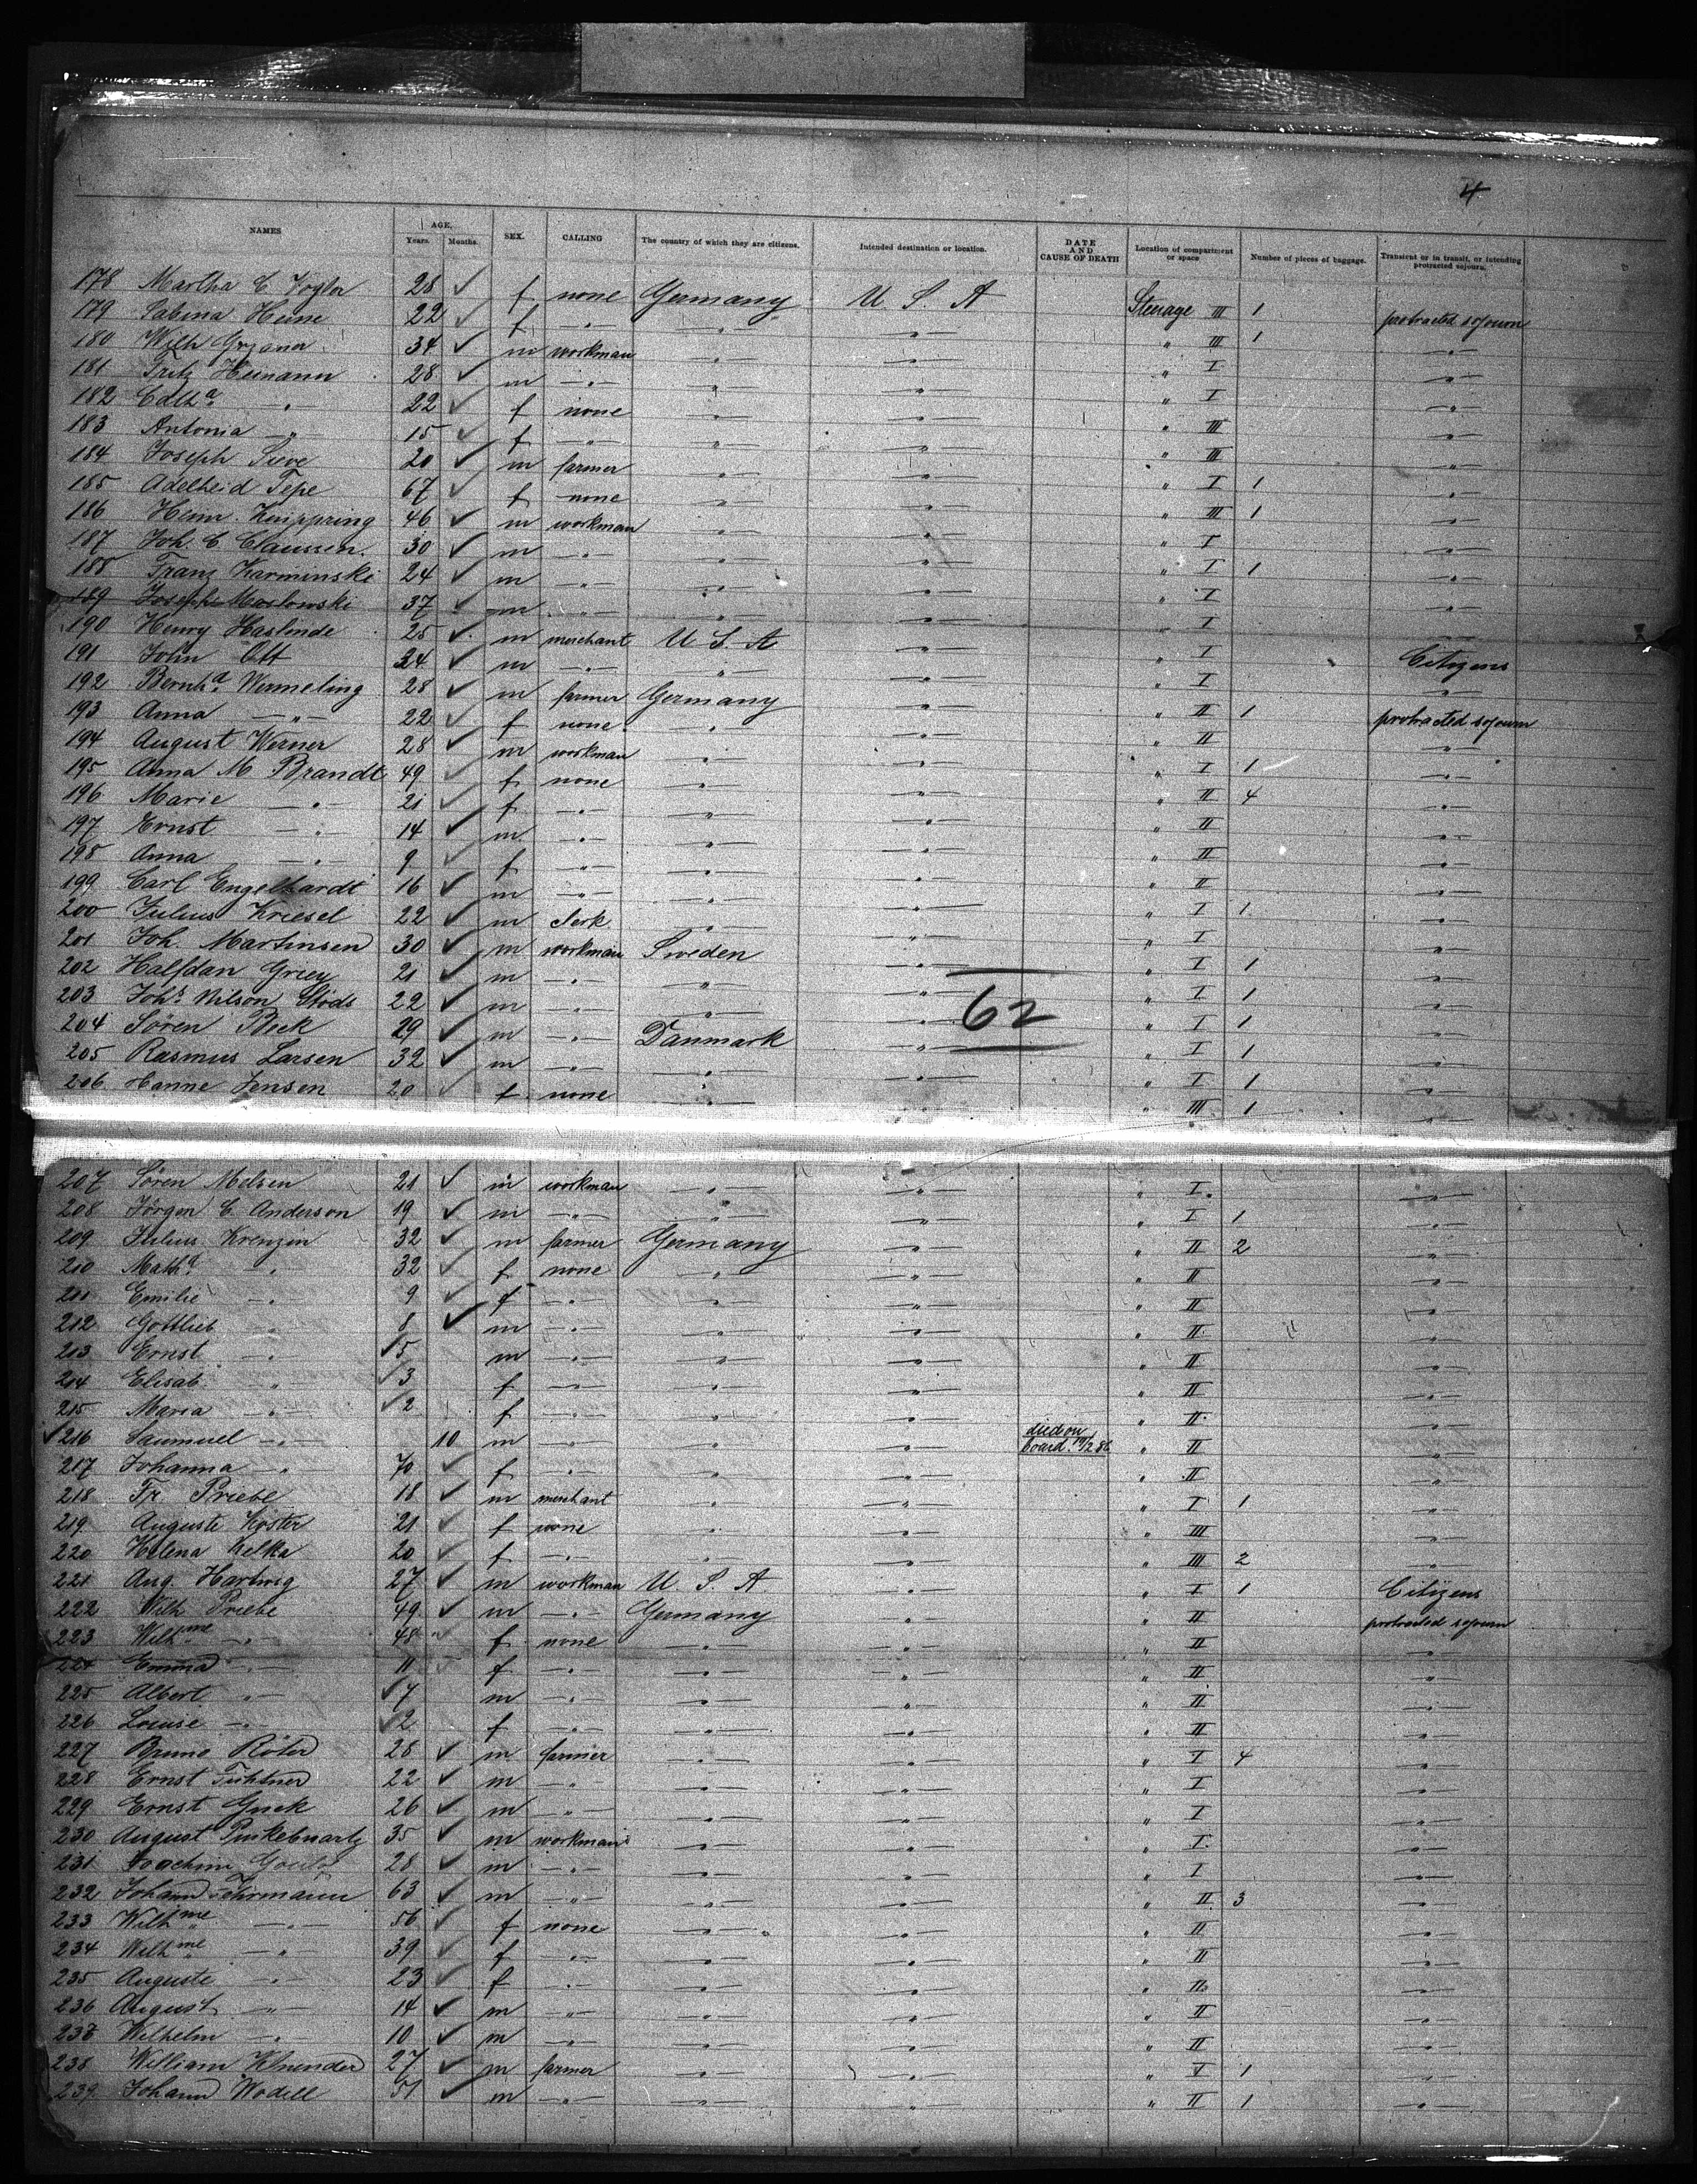 4
NAMES AGE. Years. Months. SEX. CALLING The country of which they are citizens. Intended destination or location. DATE AND CAUSE OF DEATH Location of compartment or space Number of pieces of baggage. Transient or in transit, or intending protracted sojourn.
178 Martha C Vogler 28 f none Germany U S A Steerage III 1 protracted sojourn
179 Sabina Heine 22 f —"— —"— —"— " III 1 —"—
180 Wilh 34 m workman —"— —"— " I —"—
181 Fritz Heinann 28 m —"— —"— —"— " I —"—
182 —"— 22 f none —"— —"— " III —"—
183 Antonia —"— 15 f —"— —"— —"— " III —"—
184 Joseph Sieve 20 m farmer —"— —"— " I 1 —"—
185 Adelheid Tepe 67 f none —"— —"— " III 1 —"—
186 Heinr. Knippring 46 m workman —"— —"— " I —"—
187 Joh. C Claussen. 30 m —"— —"— —"— " I 1 —"—
188 Franz Karminski 24 m —"— —"— —"— " I —"—
189 Joseph Moslowski 37 m —"— —"— —"— " I —"—
190 Henry Haslinde 25 m merchant U S A —"— " I Citizens
191 John Ott 24 m —"— —"— —"— " I —"—
192 Bernhd Wenneling 28 m farmer Germany —"— " II 1 protracted sojourn
193 Anna —"— 22 f none —"— —"— " II —"—
194 August Werner 28 m workman —"— —"— " I 1 —"—
195 Anna M Brandt 49 f none —"— —"— " II 4 —"—
196 Marie —"— 21 f —"— —"— —"— " II —"—
197 Ernst —"— 14 m —"— —"— —"— " II —"—
198 Anna —"— 9 f —"— —"— —"— " II —"—
199 Carl Engelhardt 16 m —"— —"— —"— " I 1 —"—
200 Julius Kriesel 22 m —"— —"— " I —"—
201 Joh. Martinsen 30 m workman Sweden —"— " I 1 —"—
202 Halfdan Grieg 21 m —"— —"— —"— " I 1 —"—
203 Johs Nilson 22 m —"— —"— —"— 62 " I 1 —"—
204 Sören Beck 29 m —"— Danmark —"— " I 1 —"—
205 Rasmus Larsen 32 m —"— —"— —"— " I 1 —"—
206 Hanne Jensen 20 f none —"— —"— " III 1 —"—
207 Sören Melsen 21 m workman —"— —"— " I —"—
208 Jörgen C Anderson 19 m —"— —"— —"— " I 1 —"—
209 Julius Krenzin 32 m farmer Germany —"— " II 2 —"—
210 Mathd —"— 32 f none —"— —"— " II —"—
211 Emilie —"— 9 f —"— —"— —"— " II —"—
212 Gottlieb —"— 8 m —"— —"— —"— " II —"—
213 Ernst —"— 5 m —"— —"— —"— " II —"—
214 Elisab. —"— 3 f —"— —"— —"— " II —"—
215 Maria —"— 2 f —"— —"— —"— " II —"—
216 Saumuel —"— 10 m —"— —"— —"— died on board. 19/2 86 " II —"—
217 Johanna —"— 70 f —"— —"— —"— " II —"—
218 Fr Priebe 18 m merchant —"— —"— " I 1 —"—
219 Auguste Köster 21 f none —"— —"— " III —"—
220 Helena Kelka 20 f —"— —"— —"— " III 2 —"—
221 Aug. Hartwig 27 m workman U S A —"— " I 1 Citizens
222 Wilh Priebe 49 m —"— Germany —"— " II protracted sojourn
223 Wilhme —"— 48 f none —"— —"— " II —"—
224 Emma —"— 11 f —"— —"— —"— " II —"—
225 Albert —"— 7 m —"— —"— —"— " II —"—
226 Louise —"— 2 f —"— —"— —"— " II —"—
227 Bruno Röter 28 m farmer —"— —"— " I 4 —"—
228 Ernst 22 m —"— —"— —"— " I —"—
229 Ernst Guck 26 m —"— —"— —"— " I —"—
230 August 35 m workman —"— —"— " I —"—
231 Joachim 28 m —"— —"— —"— " I —"—
232 Johann Fehrmann 63 m —"— —"— —"— " II 3 —"—
233 Wilhme —"— 56 f none —"— —"— " II —"—
234 Wilhme —"— 39 f —"— —"— —"— " II —"—
235 Auguste —"— 23 f —"— —"— —"— " II —"—
236 August —"— 14 m —"— —"— —"— " II —"—
237 Wilhelm —"— 10 m —"— —"— —"— " II —"—
238 William Klunder 27 m farmer —"— —"— " V 1 —"—
239 Johann Wodell 51 m —"— —"— —"— " II 1 —"—